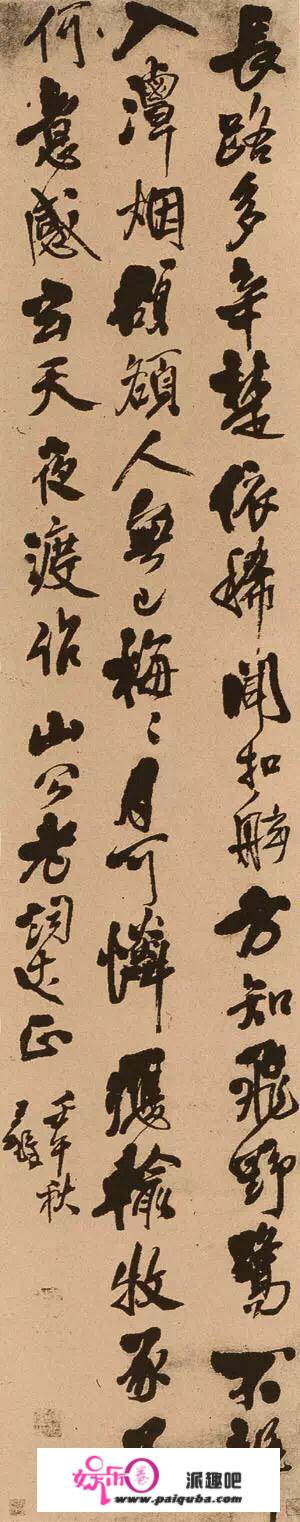 長路多辛楚依稀聞扣舷方知飛野鷺不
入潭烟額額人無已梅〻月可憐輸牧豕
何意感玄天夜渡作山公老詞丈正
壬午秋
王鐸
派趣吧
www.paiquba.com